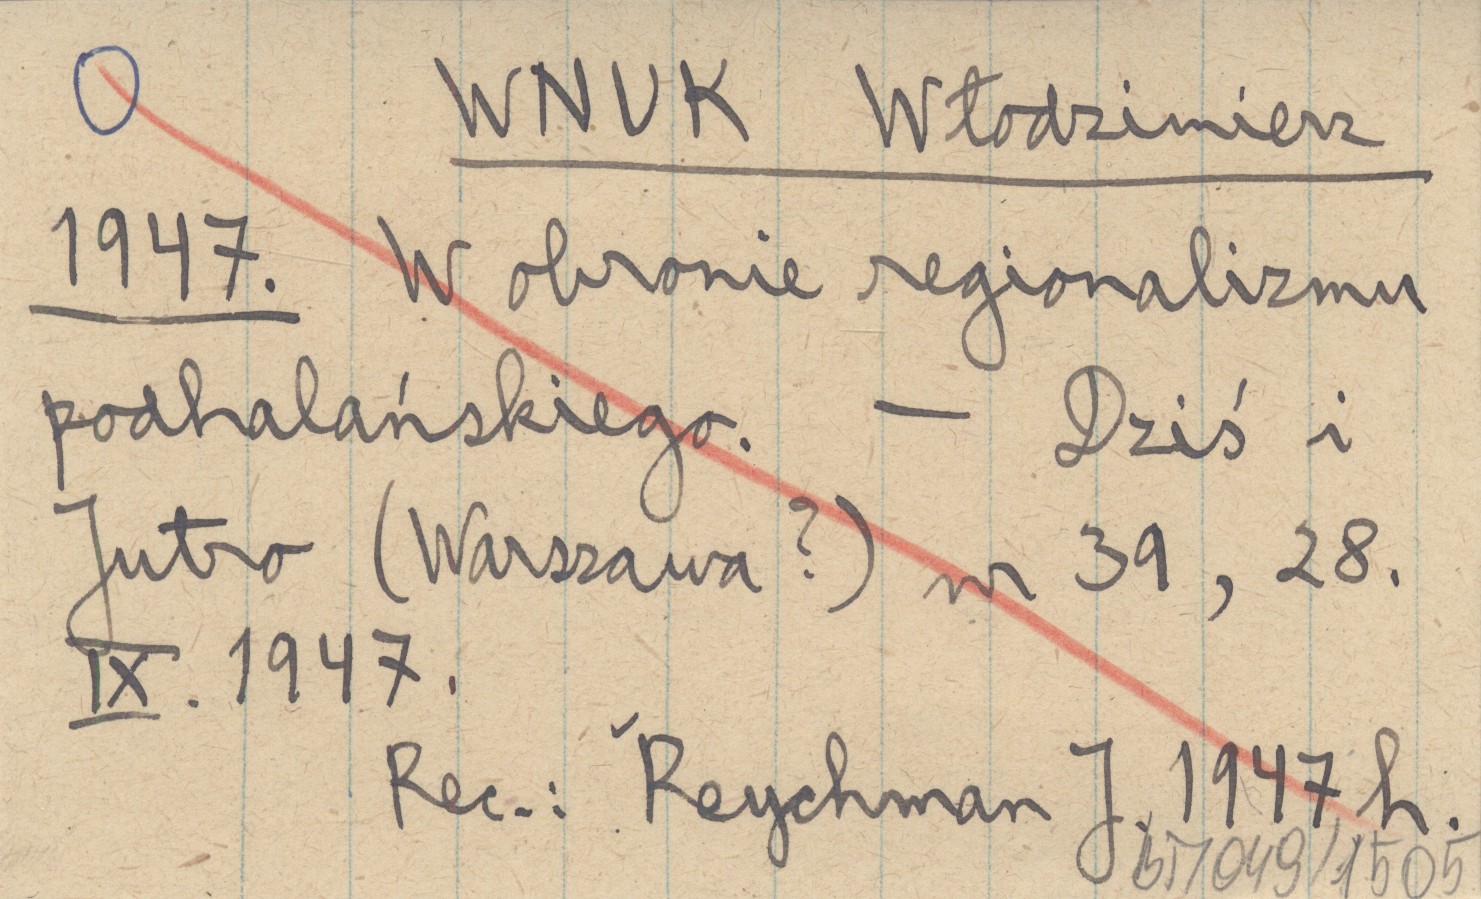 WNUK Włodzimierz
1947. W obronie regionalizmu
podhalańskiego. — Dziś i
Jutro (Warszawa?) nr 39, 28.
IX. 1947.
Rec.: Reychman J. 1947 h.
/049/1505